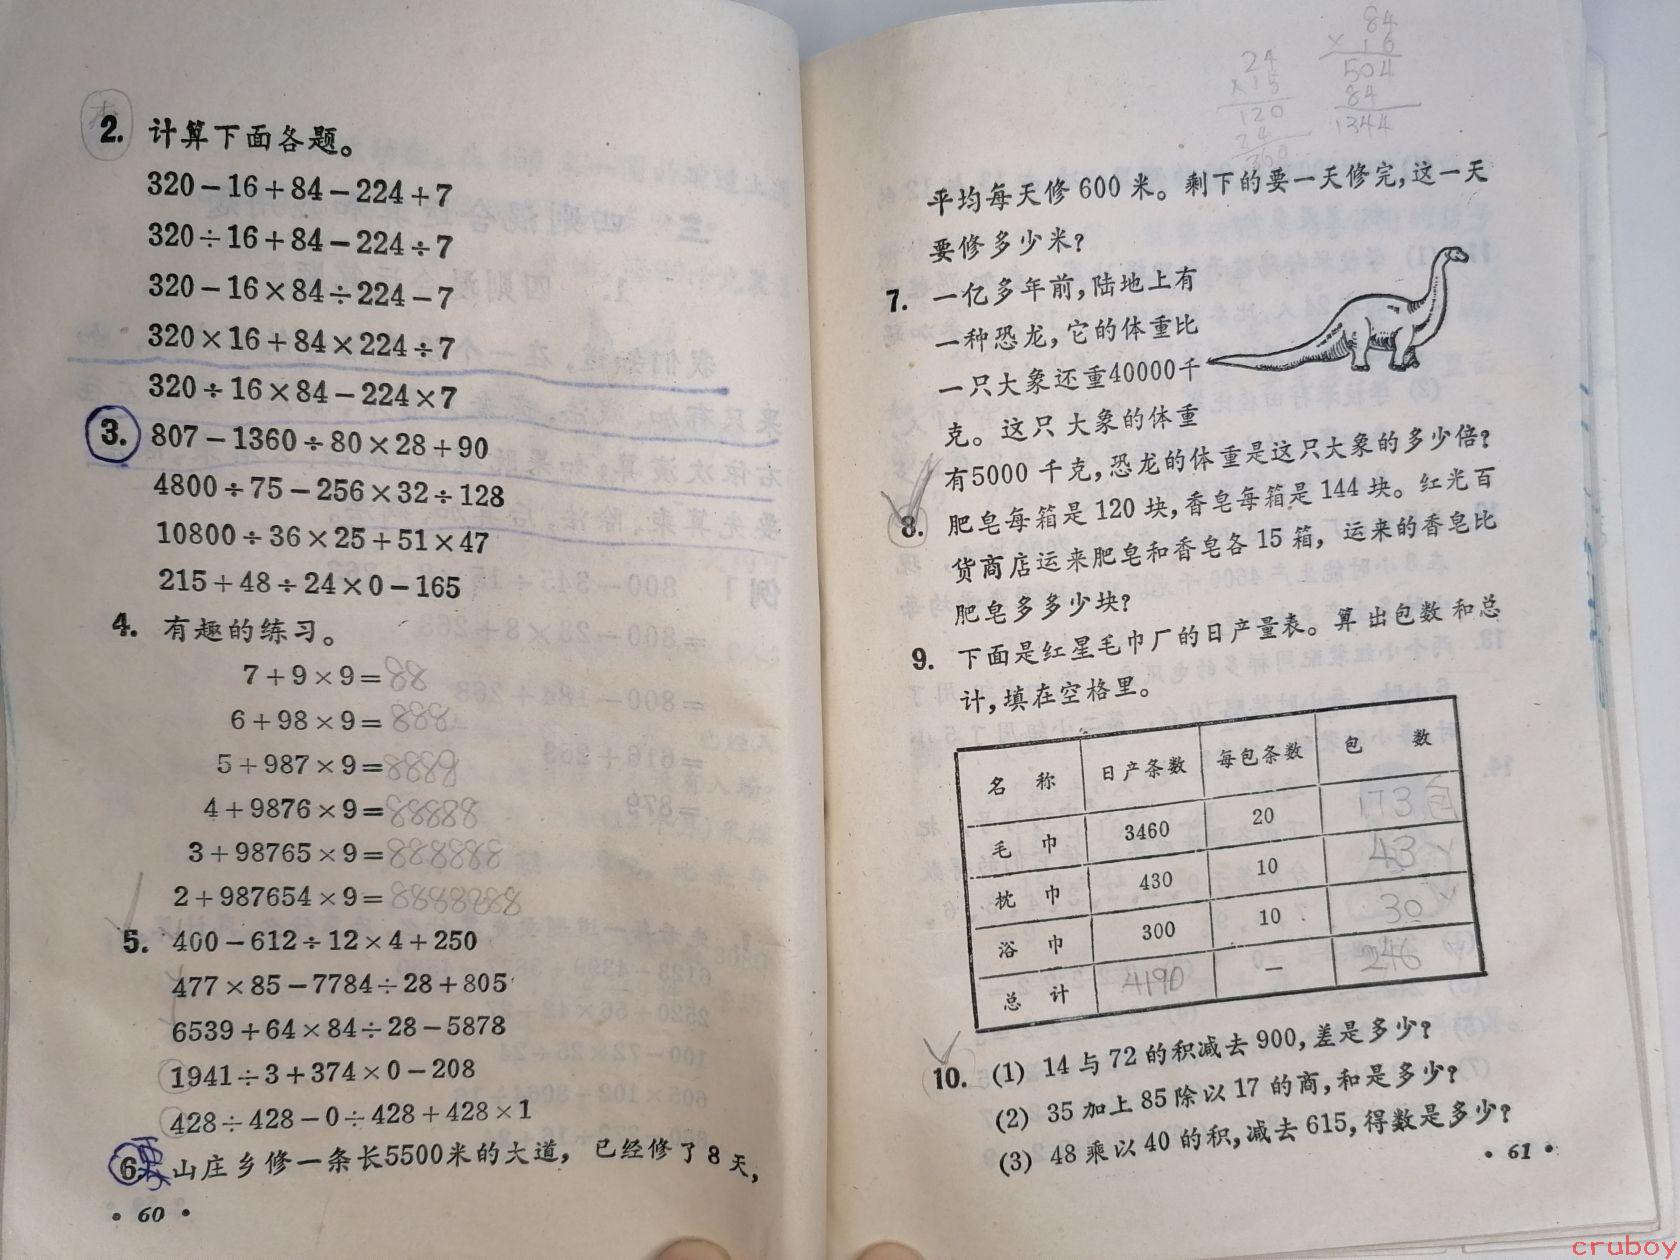 2. 计算下面各题。
320－16＋84－224＋7
320÷16＋84－224÷7
320－16×84÷224－7
320×16＋84×224÷7
320÷16×84－224×7
3. 807－1360÷80×28＋90
4800÷75－256×32÷128
10800÷36×25＋51×47
215＋48÷24×0－165
4. 有趣的练习。
7＋9×9＝88
6＋98×9＝888
5＋987×9＝8888
4＋9876×9＝88888
3＋98765×9＝888888
2＋987654×9＝8888888
5. 400－612÷12×4＋250
477×85－7784÷28＋805
6539＋64×84÷28－5878
1941÷3＋374×0－208
428÷428－0÷428＋428×1
6. 山庄乡修一条长5500米的大道，已经修了8天，
·60·
24
×15
120
24
360
84
×16
504
84
1344
平均每天修600米。剩下的要一天修完，这一天
要修多少米？
7. 一亿多年前，陆地上有
一种恐龙，它的体重比
一只大象还重40000千
克。这只大象的体重
有5000千克，恐龙的体重是这只大象的多少倍？
8. 肥皂每箱是120块，香皂每箱是144块。红光百
货商店运来肥皂和香皂各15箱，运来的香皂比
肥皂多多少块？
9. 下面是红星毛巾厂的日产量表。算出包数和总
计，填在空格里。
名 称 日产条数 每包条数 包 数
毛 巾 3460 20 173包
枕 巾 430 10 43
浴 巾 300 10 30
总 计 4190 － 246
10. (1) 14与72的积减去900，差是多少？
(2) 35加上85除以17的商，和是多少？
(3) 48乘以40的积，减去615，得数是多少？
·61·
cruboy